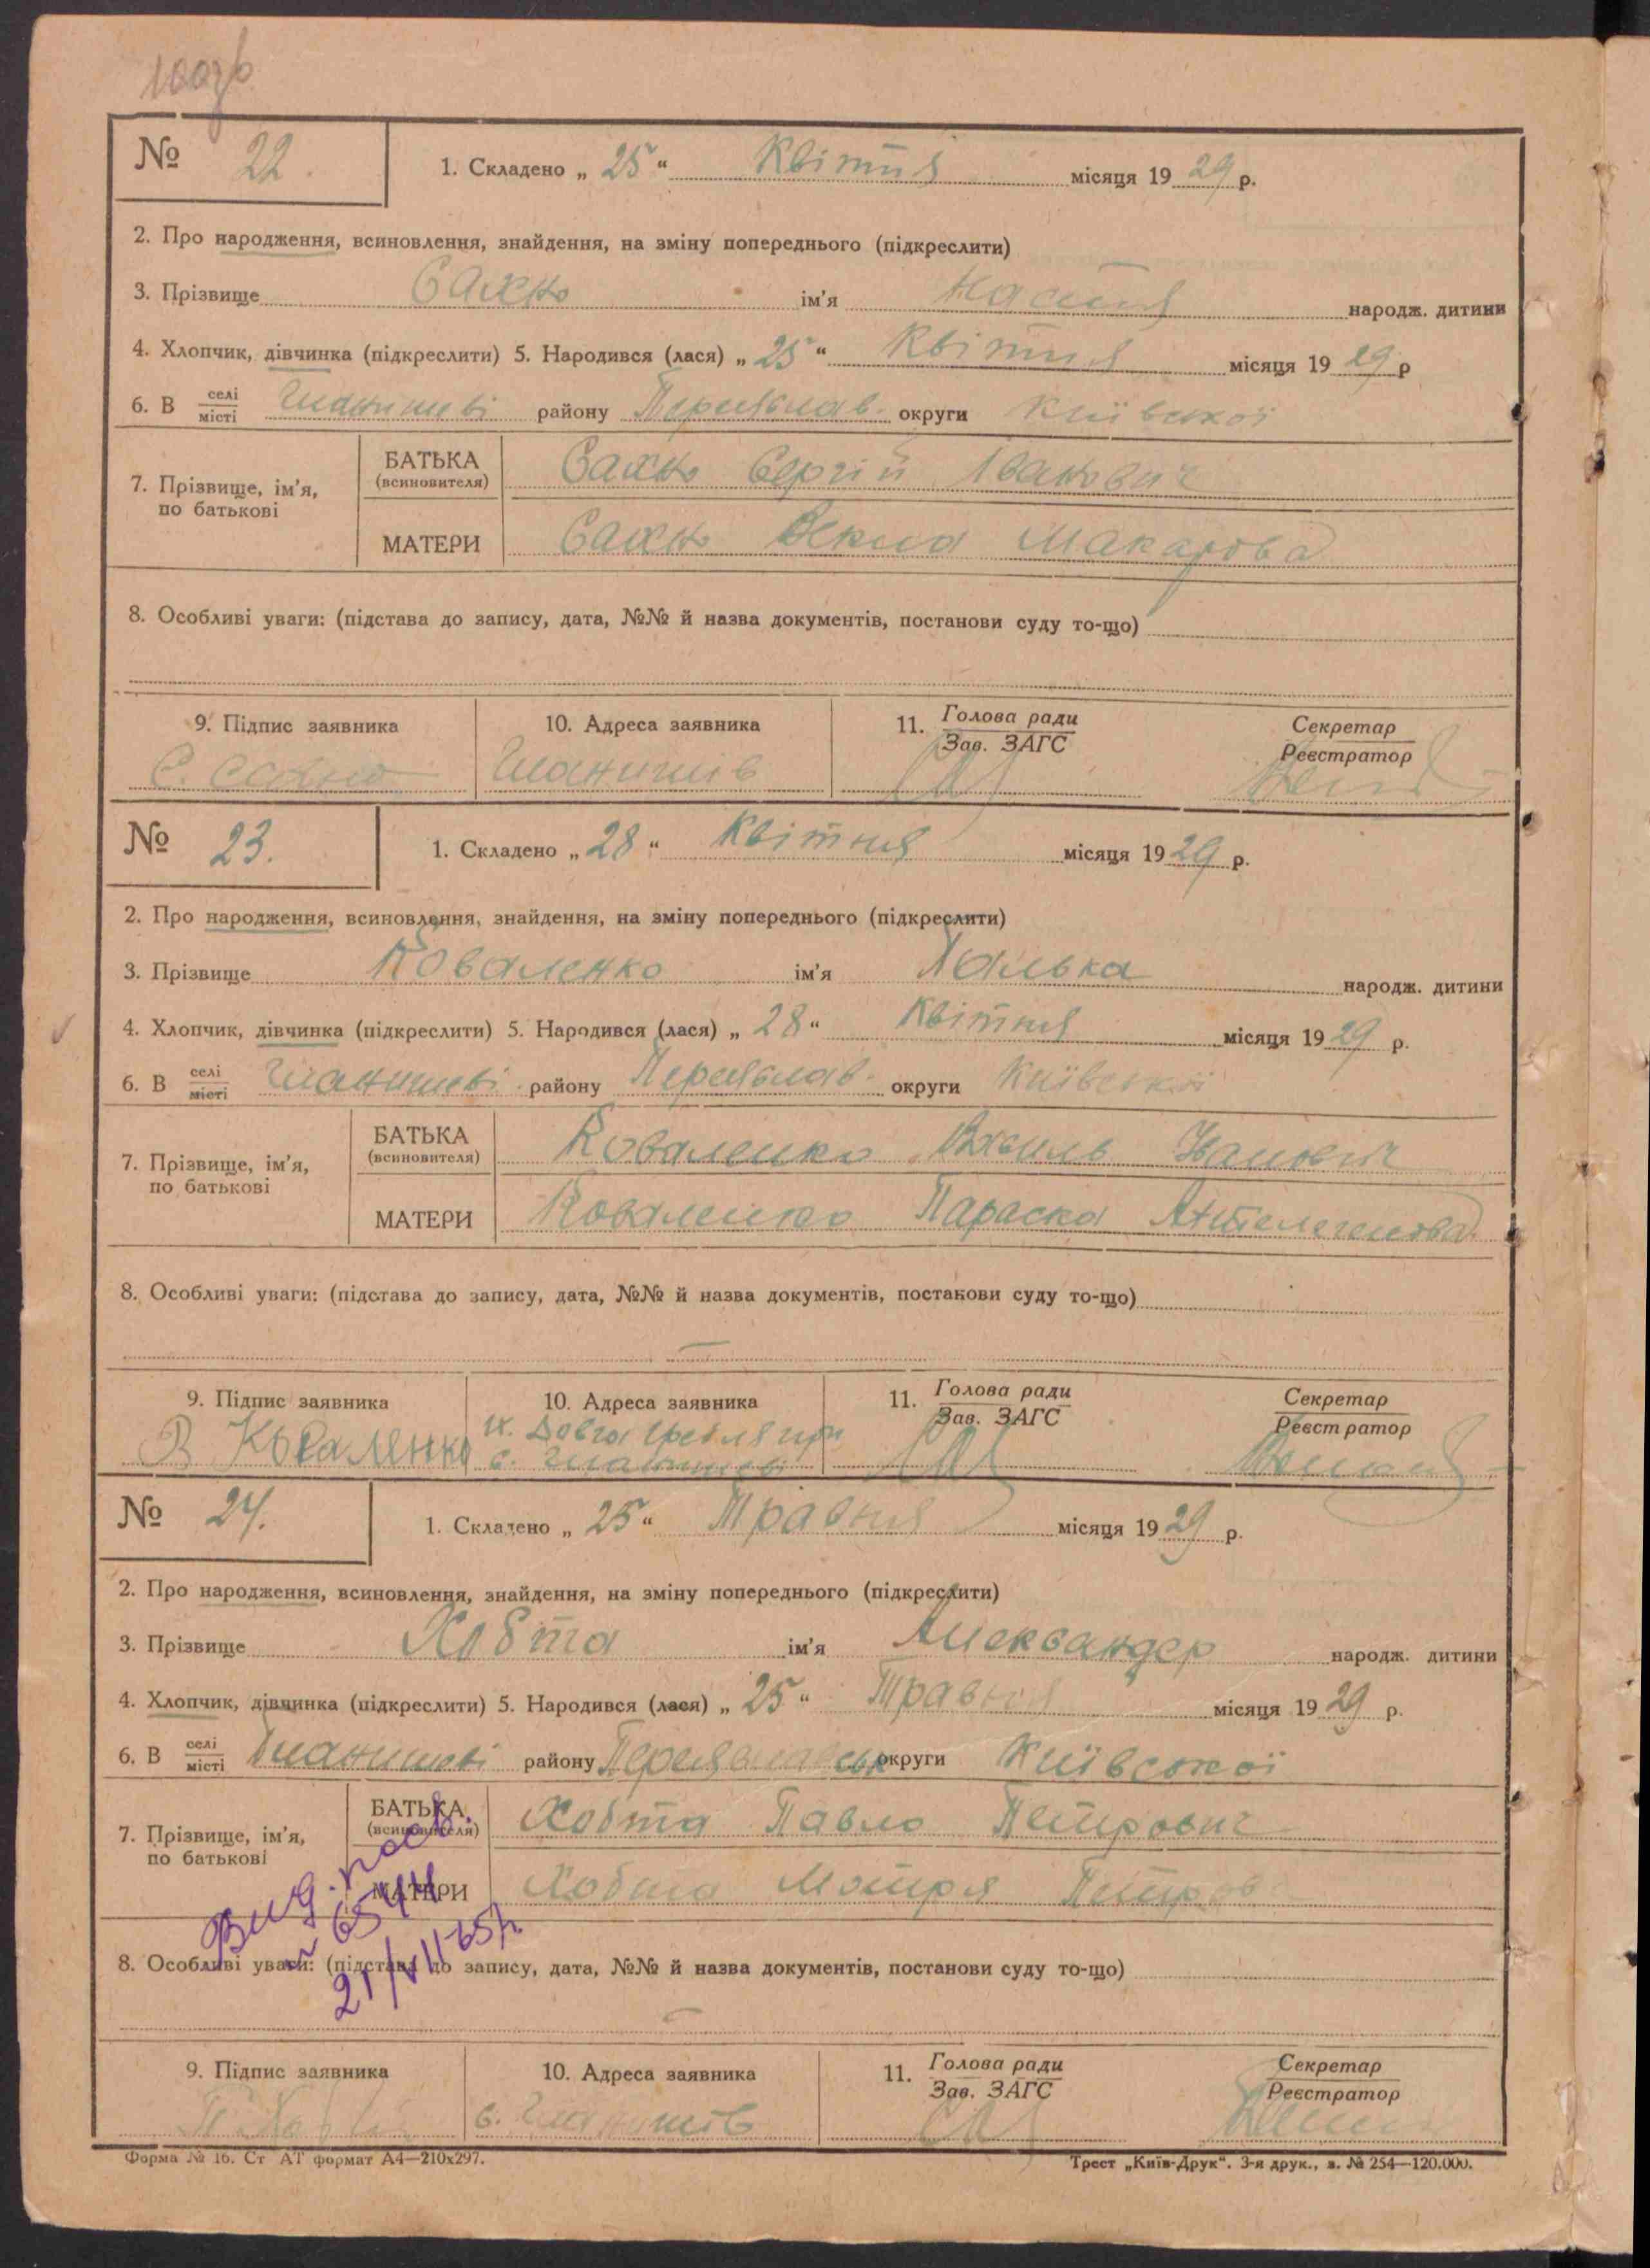 100зв
№ 22. 1. Складено „ 25 “ Квітня місяця 19 29 р.
2. Про народження, всиновлення, знайдення, на зміну попереднього (підкреслити)
3. Прізвище Сахно ім'я Настя народж. дитини
4. Хлопчик, дівчинка (підкреслити) 5. Народився (лася) „ 25 “ Квітня місяця 19 29 р
6. В селі/місті Гланишеві району Переяслав. округи Київської
7. Прізвище, ім'я, по батькові
БАТЬКА (всиновителя) Сахно Сергій Іванович
МАТЕРИ Сахно Векла Макарова
8. Особливі уваги: (підстава до запису, дата, №№ й назва документів, постанови суду то-що)
9. Підпис заявника 10. Адреса заявника 11. Голова ради/Зав. ЗАГС Секретар/Реєстратор
С. Сахно Гланишів
№ 23. 1. Складено „ 28 “ Квітня місяця 19 29 р.
2. Про народження, всиновлення, знайдення, на зміну попереднього (підкреслити)
3. Прізвище Коваленко ім'я Галька народж. дитини
4. Хлопчик, дівчинка (підкреслити) 5. Народився (лася) „ 28 “ Квітня місяця 19 29 р.
6. В селі/місті Гланишеві району Переяслав. округи Київської
7. Прізвище, ім'я, по батькові
БАТЬКА (всиновителя) Коваленко Василь Іванович
МАТЕРИ Коваленко Параска
8. Особливі уваги: (підстава до запису, дата, №№ й назва документів, постанови суду то-що)
—
9. Підпис заявника 10. Адреса заявника 11. Голова ради/Зав. ЗАГС Секретар/Реєстратор
х. Довга Гребля при
В Коваленко с. Гланишеві
№ 24. 1. Складено „ 25 “ Травня місяця 19 29 р.
2. Про народження, всиновлення, знайдення, на зміну попереднього (підкреслити)
3. Прізвище Хобта ім'я Александер народж. дитини
4. Хлопчик, дівчинка (підкреслити) 5. Народився (лася) „ 25 “ Травня місяця 19 29 р.
6. В селі/місті Гланишеві району Переяславськ округи Київської
7. Прізвище, ім'я, по батькові
БАТЬКА (всиновителя) Хобта Павло Петрович
МАТЕРИ Хобта Мотря Петров
Вид. посв.
№ 6544
21/VII-65р
8. Особливі уваги: (підстава до запису, дата, №№ й назва документів, постанови суду то-що)
—
9. Підпис заявника 10. Адреса заявника 11. Голова ради/Зав. ЗАГС Секретар/Реєстратор
с. Гланишів
Форма № 16. Ст АТ формат А4—210х297. Трест „Київ-Друк“. 3-я друк., з. № 254—120.000.